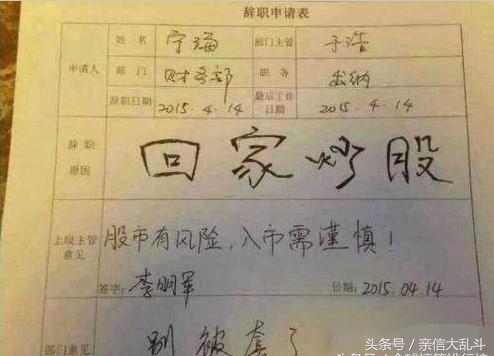 辞职申请表
申请人 姓名 宁海 部门主管 于浩
部门 财务部 职务 出纳
辞职日期 2015.4.14 最后工作日期 2015.4.14
辞职原因 回家炒股
上级主管意见 股市有风险，入市需谨慎！
签字：李明军 日期：2015.04.14
部门意见 别被套了
头条号／亲信大乱斗